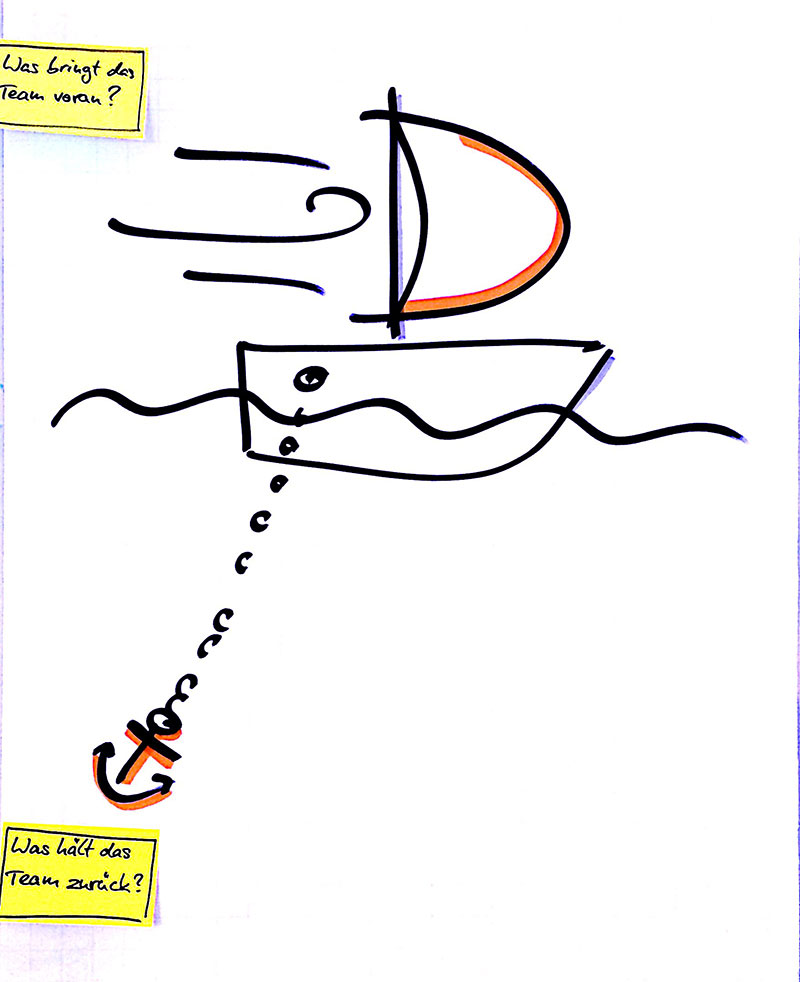 Was bringt das
Team voran?
Was hält das
Team zurück?